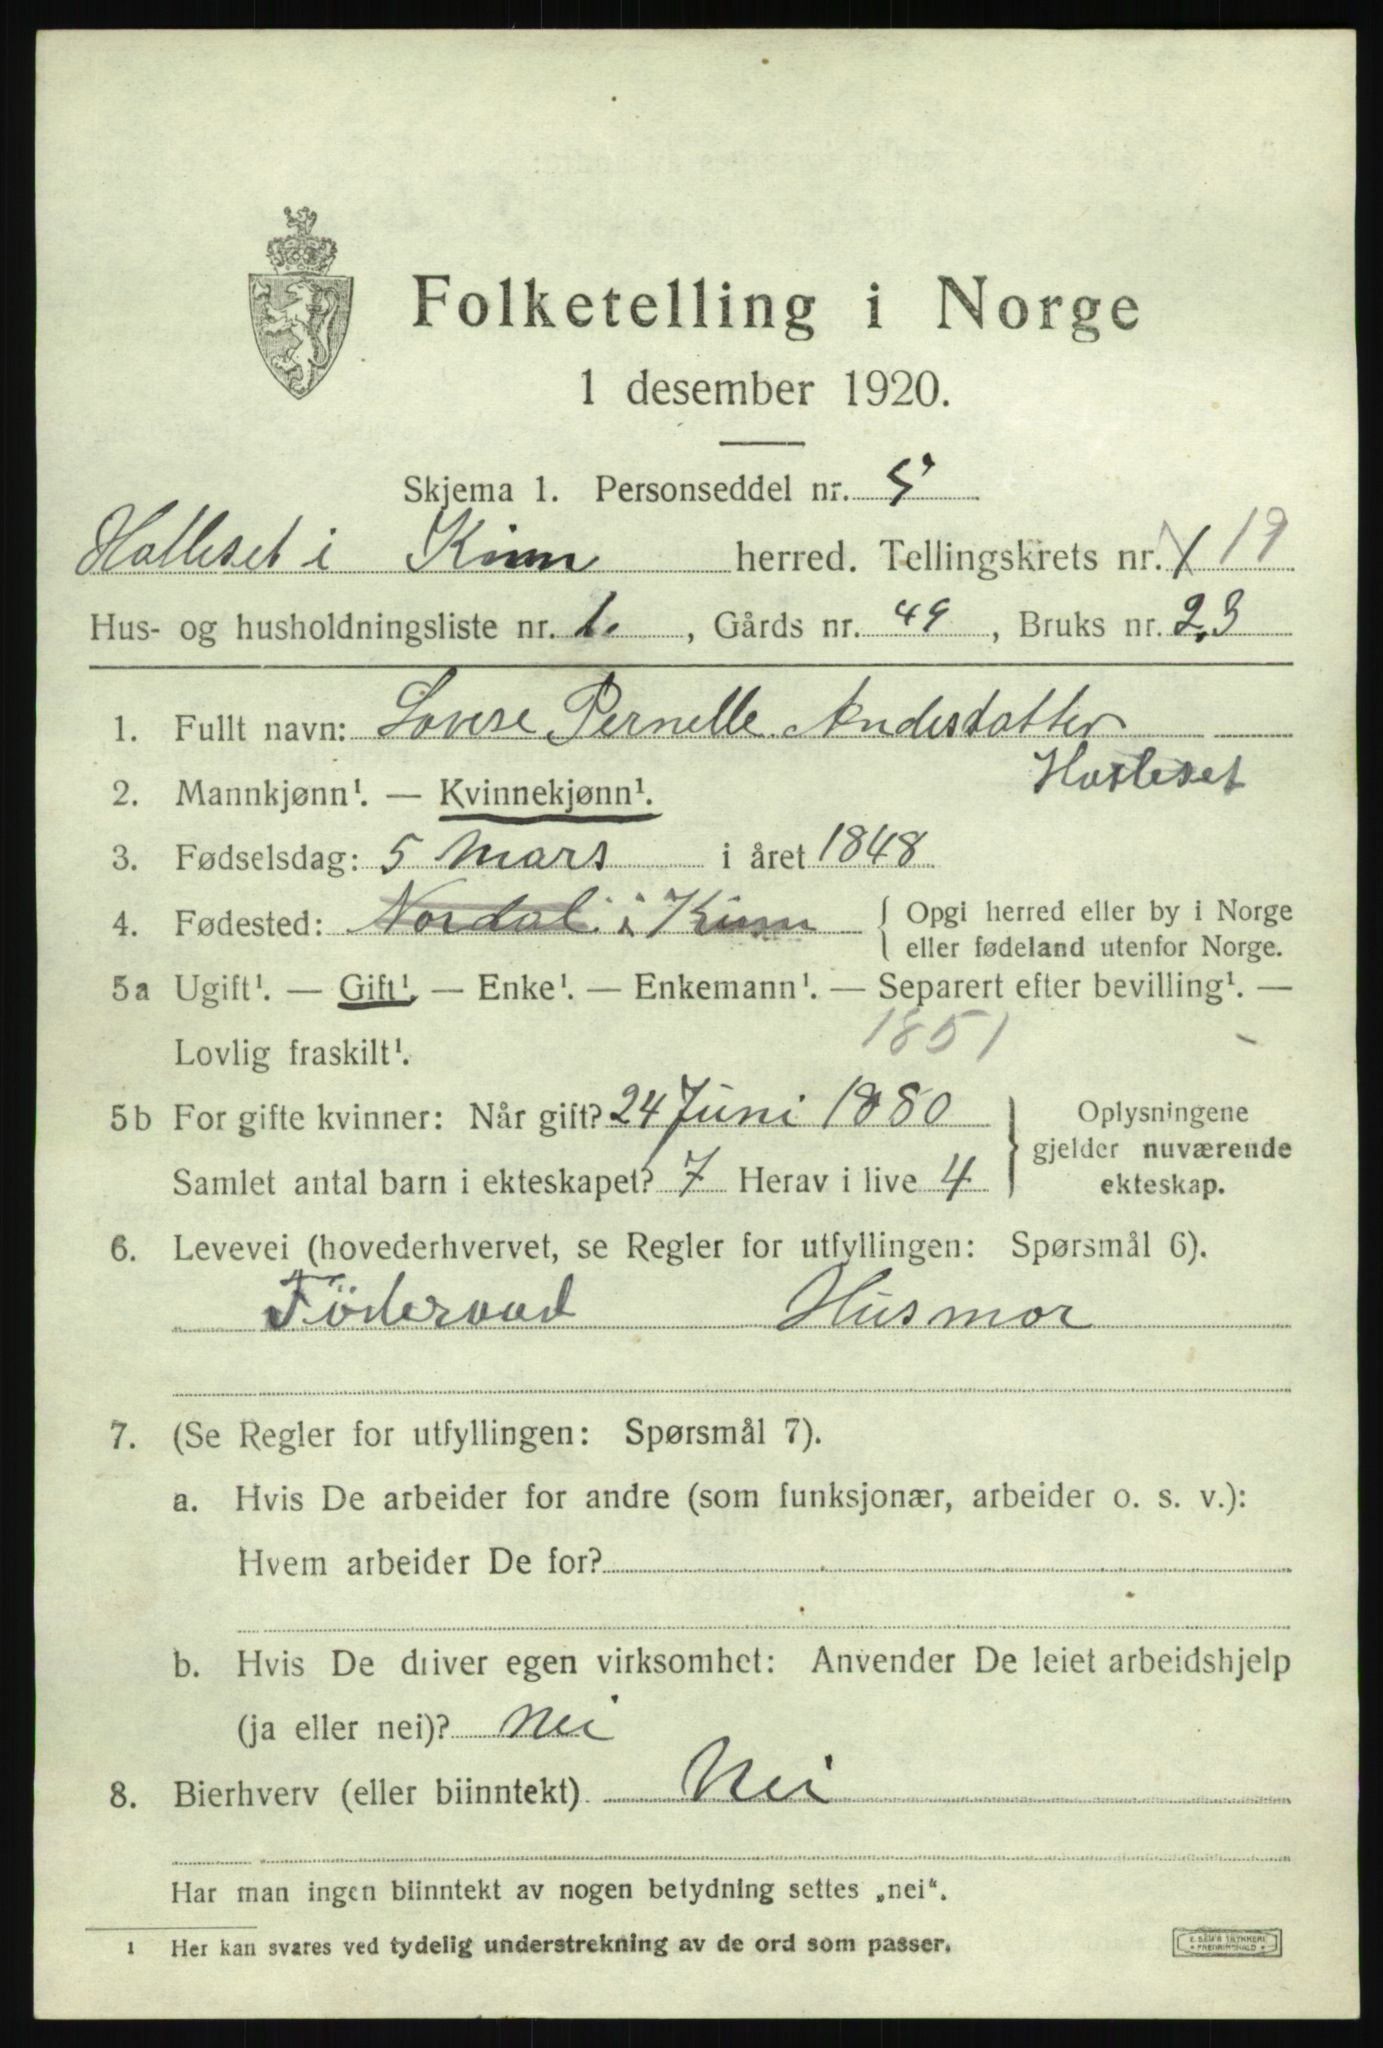 Folketelling i Norge
1 desember 1920.
Skjema 1. Personseddel nr. 5
Hatleset i Kinn herred. Tellingskrets nr. 19
Hus- og husholdningsliste nr. 1. , Gårds nr. 49 , Bruks nr. 23
1. Fullt navn: Lovise Pernelle Andesdatter
Hatleset
2. Mannkjønn¹. — Kvinnekjønn¹.
3. Fødselsdag: 5 Mars i året 1848
4. Fødested: Nordal i Kinn { Opgi herred eller by i Norge
eller fødeland utenfor Norge.
5a Ugift¹. — Gift¹. — Enke¹. — Enkemann¹. — Separert efter bevilling¹. —
Lovlig fraskilt¹. 1851
5b For gifte kvinner: Når gift? 24 Juni 1880 } Oplysningene
gjelder nuværende
Samlet antal barn i ekteskapet? 7 Herav i live 4 ekteskap.
6. Levevei (hovederhvervet, se Regler for utfyllingen: Spørsmål 6).
Föderaad Husmor
7. (Se Regler for utfyllingen: Spørsmål 7).
a. Hvis De arbeider for andre (som funksjonær, arbeider o. s. v.):
Hvem arbeider De for?
b. Hvis De driver egen virksomhet: Anvender De leiet arbeidshjelp
(ja eller nei)? Nei
8. Bierhverv (eller biinntekt) Nei
Har man ingen biinntekt av nogen betydning settes „nei“.
1 Her kan svares ved tydelig understrekning av de ord som passer.